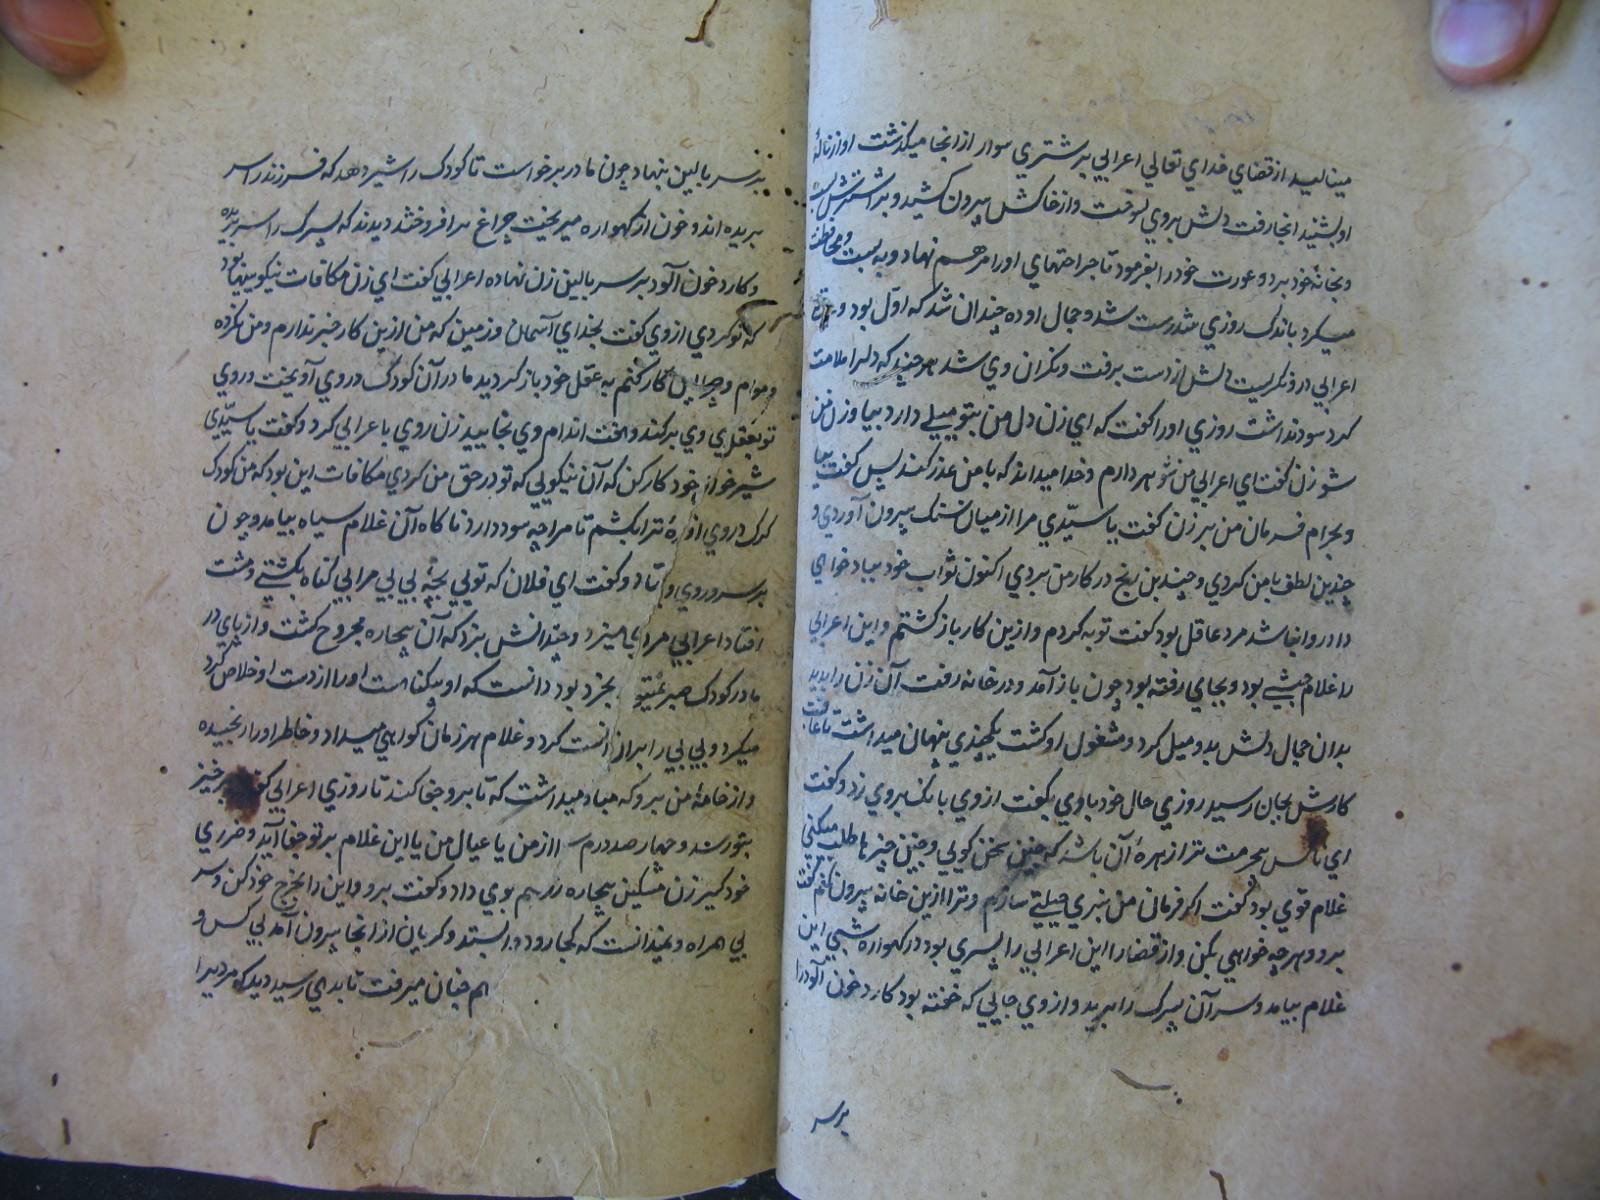 مینالید از قضاي خداي تعالي اعرابي بر شتري سوار از انجا میگذشت اواز نالهٔ
او بشنید انجا رفت دلش بروي بسوخت و از خاکش بیرون کشید و بر اشترش
و بخانهٔ خود برد و عورت خود را بفرمود تا جراحتهاي او را مرهم نهاد و به محافظت
میکرد باندک روزي تندرست شد و جمال او ده چندان شد که اوّل بود و
اعرابي در و نگریست دلش از دست برفت و نگران وي شد هر چند که دلرا ملامت
کرد سود نداشت روزي او را گفت که اي زن دل من بتو میلي دارد بیا و زن من
شو زن گفت اي اعرابي من شوهر دارم و خدا میداند که با من عذر کند پس گفت بیا
و بحرام فرمان من بر زن گفت یا سیّدي مرا از میان سنک بیرون آوردي و
چندین لطف با من کردي و چندین رنج در کار من بردي اکنون ثواب خود بباد خواهي
داد روا نباشد مرد عاقل بود گفت توبه کردم و ازین کار باز گشتم و این اعرابي
را غلام حبشي بود و بجایي رفته بود چون باز آمد و در خانه رفت آن زن را بدید
بدان جمال دلش بدو میل کرد و مشغول او گشت یکچندي پنهان میداشت تا عاقبت
کارش بجان رسید روزي حال خود باوي بگفت ازوي بانک بروي زد و گفت
اي ناکس بیحرمت ترا زهرهٔ آن باشد که چنین سخن گویي و چنین چیزها طلب میکني
غلام قوي بود گفت اگر فرمان من نبري حیلتي سازم و ترا ازین خانه بیرون کنم گفت
برو و هرچه خواهي بکن و از قضا را این اعرابي را پسري بود در کهواره شبي این
غلام بیامد و سر آن پسرک را ببرید و ازوي جایي که خفته بود کارد خون آلود را
بر سر
بر سر بالین بنهاد چون مادر برخواست تا کودک را شیر دهد که فرزند را سر
بریده اند و خون از کهواره میریخت چراغ بر افروختند دیدند که پسرک را سر بریده
و کارد خون آلود بر سر بالین زن نهاده اعرابي گفت اي زن مکافات نیکوییها بود
که تو کردي ازوي گفت بخداي آسمان و زمین که من ازین کار خبر ندارم و من نکرده
و چرا این کار کنم به عقل خود باز گردید مادر آن کودک در وي آویخت و روي
وي بر کند و لخت اندام وي بخایید زن روي باعرابي کرد و گفت یا سیّدي
خود کار کن که آن نیکویي که تو در حق من کردي مکافات این بود که من کودک
ترا بکشم تا مرا چه سود دارد ناکاه آن غلام سیاه بیامد و چون
بر سر و روي و گفت اي فلان که تویي بچهٔ بي بي مرا بي گناه بکشتي و مشت
افتاد اعرابي مر میزد و چندانش بزد که آن بیچاره مجروح گشت و از پاي در
مادر کودک صبر بخرد بود دانست که او بیگناهست او را از دست او خلاص کرد
میکرد و بي بي را بران داشت کرد و غلام هر زمان گواهي میداد و خاطر او را رنجیده
و از خانهٔ من برو که مبادا تا بر و جفا کند تا روزي اعرابي گفت برخیز
و چهار صد درم از من یا عیال من یا این غلام بر تو جفا آید و ضرري
خود گیر زن مسکین بیچاره زر هم بوي داد و گفت برو و این را خرج خود کن و سر
بي همراه و نمیدانست که کجا رود و گریان از انجا بیرون آمد بي کس و
همچنان میرفت تا بدهي رسید دید که مردیرا